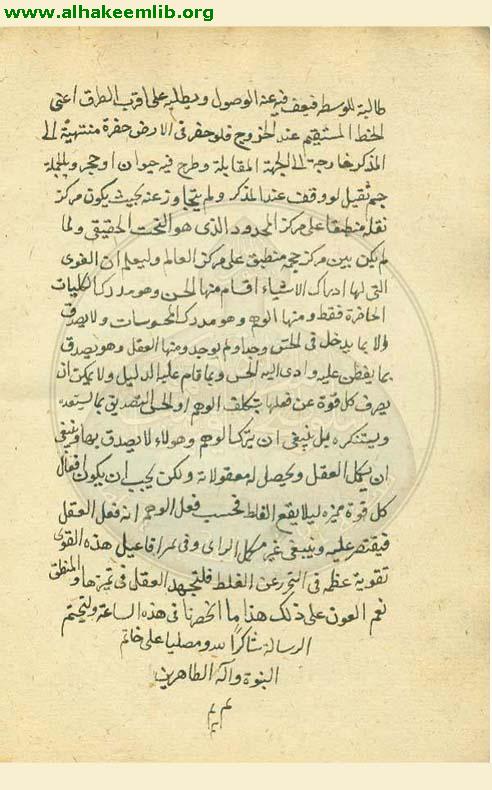 www.alhakeemlib.org
طالبة للوسط فيقف فيه عند الوصول ويطلبه على اقرب الطرق اعنى
الخط المستقيم عند الخروج فلو حفر فى الارض حفرة منتهية الى
المذكر خارجة الى الجهة المقابلة وطرح فيه حيوان او حجر وبالجملة
جسم ثقيل لوقف عند المذكر ولم يتجاوز عنه بحيث يكون مركز
ثقله منطبقا على مركز المحدود الذى هو التحت الحقيقى ولما
لم يكن بين مركز حجمه منطبق على مركز العالم وليعلم ان القوى
التى لها ادراك الاشياء اقسام منها الحس وهو مدرك
الحاضرة فقط ومنها الوهم وهو مدرك المحسوسات ولا يصدق
الا بما يدخل فى الحس وجد او لم يوجد ومنها العقل وهو يصدق
بما يفطن عليه وادى اليه الحس وبما قام عليه الدليل ولا يمكن ان
يصرف كل قوة عن فعلها بتكلف الوهم او الحس التصديق بما يستبعد
ويستنكره بل ينبغى ان يترك الوهم وهؤلاء لا يصدق بصاف ينبغى
ان يكمل العقل ويحصل له معقولاته ولكن يجب ان يكون افعال
كل قوة مميزه ليلا يقع الغلط فيحسب فعل الوهم انه فعل العقل
فيقتصر عليه وينبغى غير مكمل الراى وفى تمرا فاعيل هذه القوى
تقوية عظمه فى التحرز عن الغلط فلتجهد العقل فى تميزها والمنطق
نعم العون على ذلك هذا ما احضرنا فى هذه الساعة ولتختم
الرسالة شاكرا لله ومصليا على خاتم
النبوة وآله الطاهرين